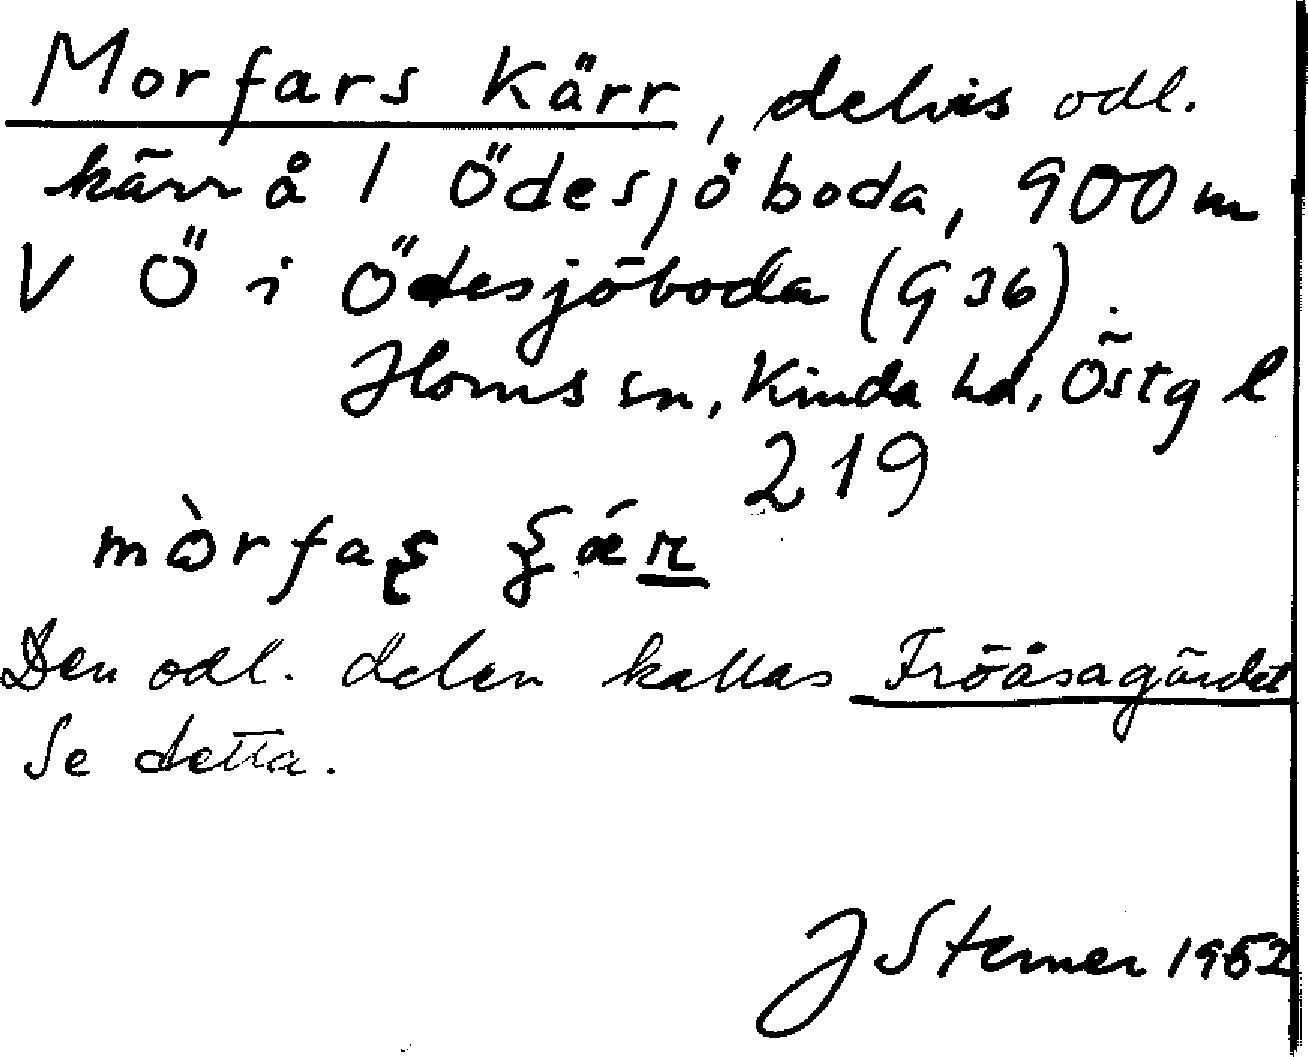 Morfars Kärr, delvis odl.
kärr å 1 Ödesjöboda, 900 m
V Ö i Ödesjöboda (G 36).
Horns sn, Kinda hd, Östg l
219
mòrfaʂ
Den odl. delen kallas Fröåsagärdet
Se detta.
J Sterner 1952